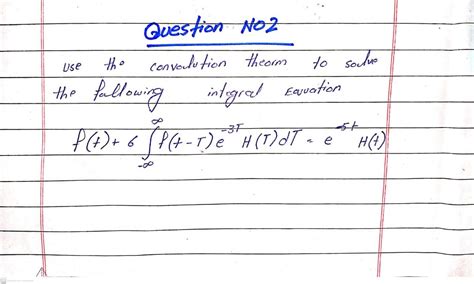 Question NO2
use the convoulution theorm to soulve
the following integral Equation
f(t) + 6 ∫_{-∞}^{∞} f(t-T) e^{-3T} H(T) dT = e^{-5t} H(t)